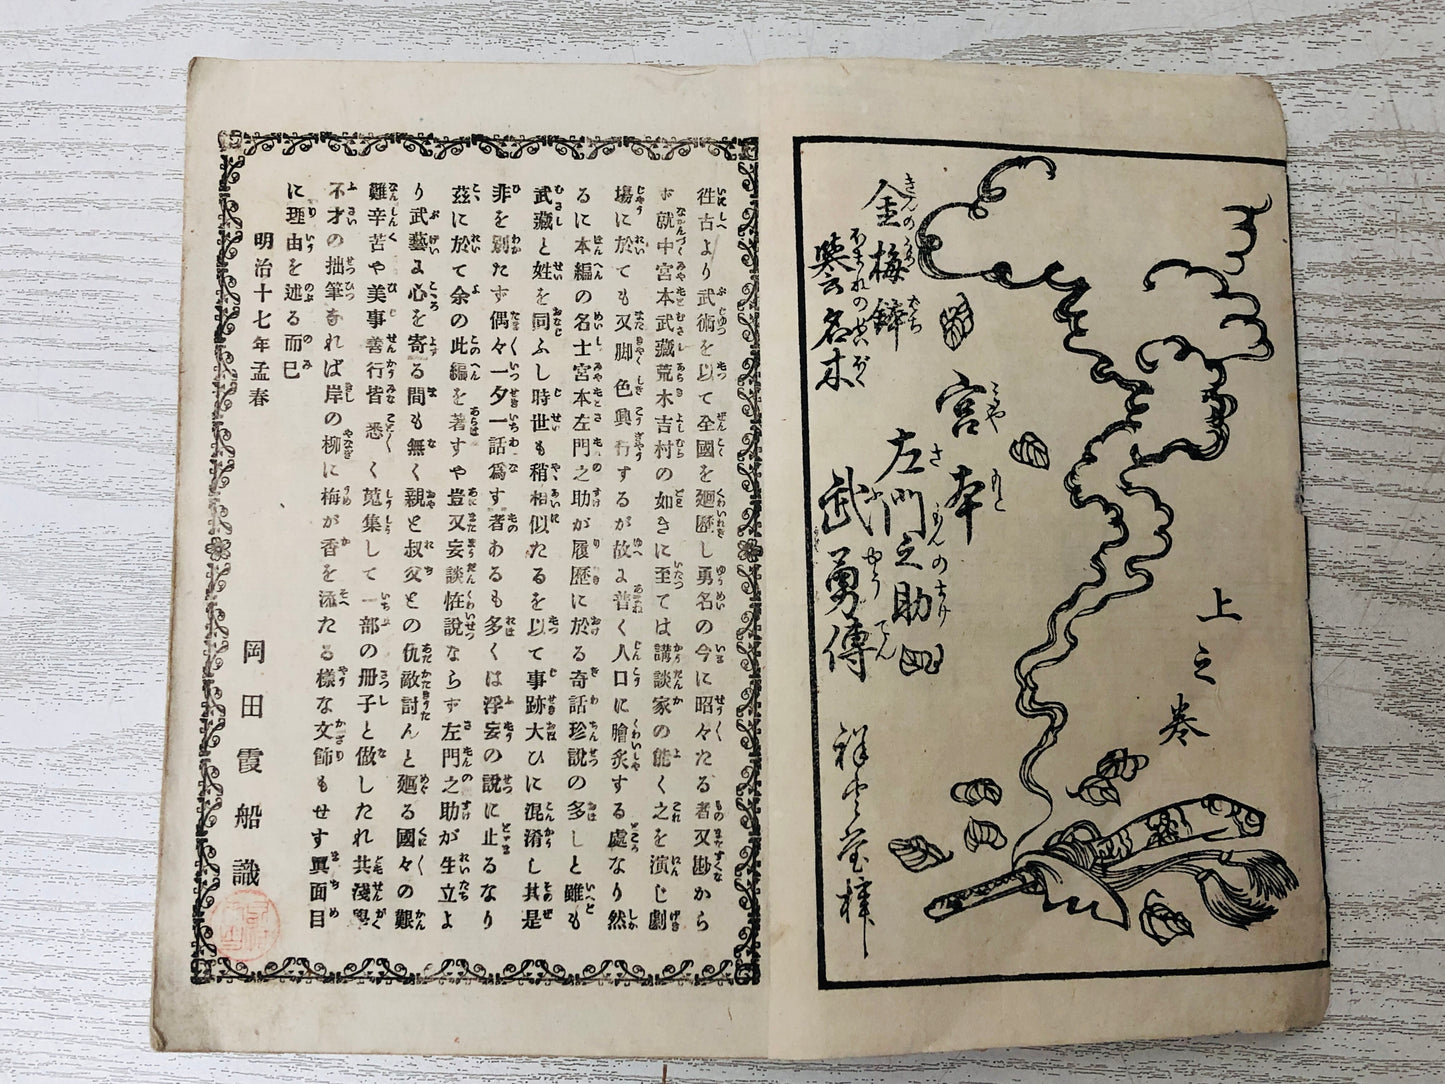 金梅鉢
誉名木
宮本
左門之助
武勇傳
上之巻
往古より武術を以て全國を廻歴し勇名の今に昭々たる者又尠から
ず就中宮本武藏荒木吉村の如きに至ては講談家の能く之を演じ劇
塲に於ても又脚色興行するが故よ普く人口に膾炙する處なり然
るに本編の名士宮本左門之助が履歴に於る奇話珍説の多しと雖も
武藏と姓を同ふし時世も稍相似たるを以て事跡大ひに混淆し其是
非を別たず偶々一夕一話爲す者あるも多くは浮妄の説に止るなり
茲に於て余の此編を著すや豈又妄談恠説ならず左門之助が生立よ
り武藝よ心を寄る間も無く親と叔父との仇敵討んと廻る國々の艱
難辛苦や美事善行皆悉く蒐集して一部の冊子と做したれ共淺學
不才の拙筆なれば岸の柳に梅が香を添たる樣な文飾もせず眞面目
に理由を述る而已
明治十七年孟春
岡田霞船識